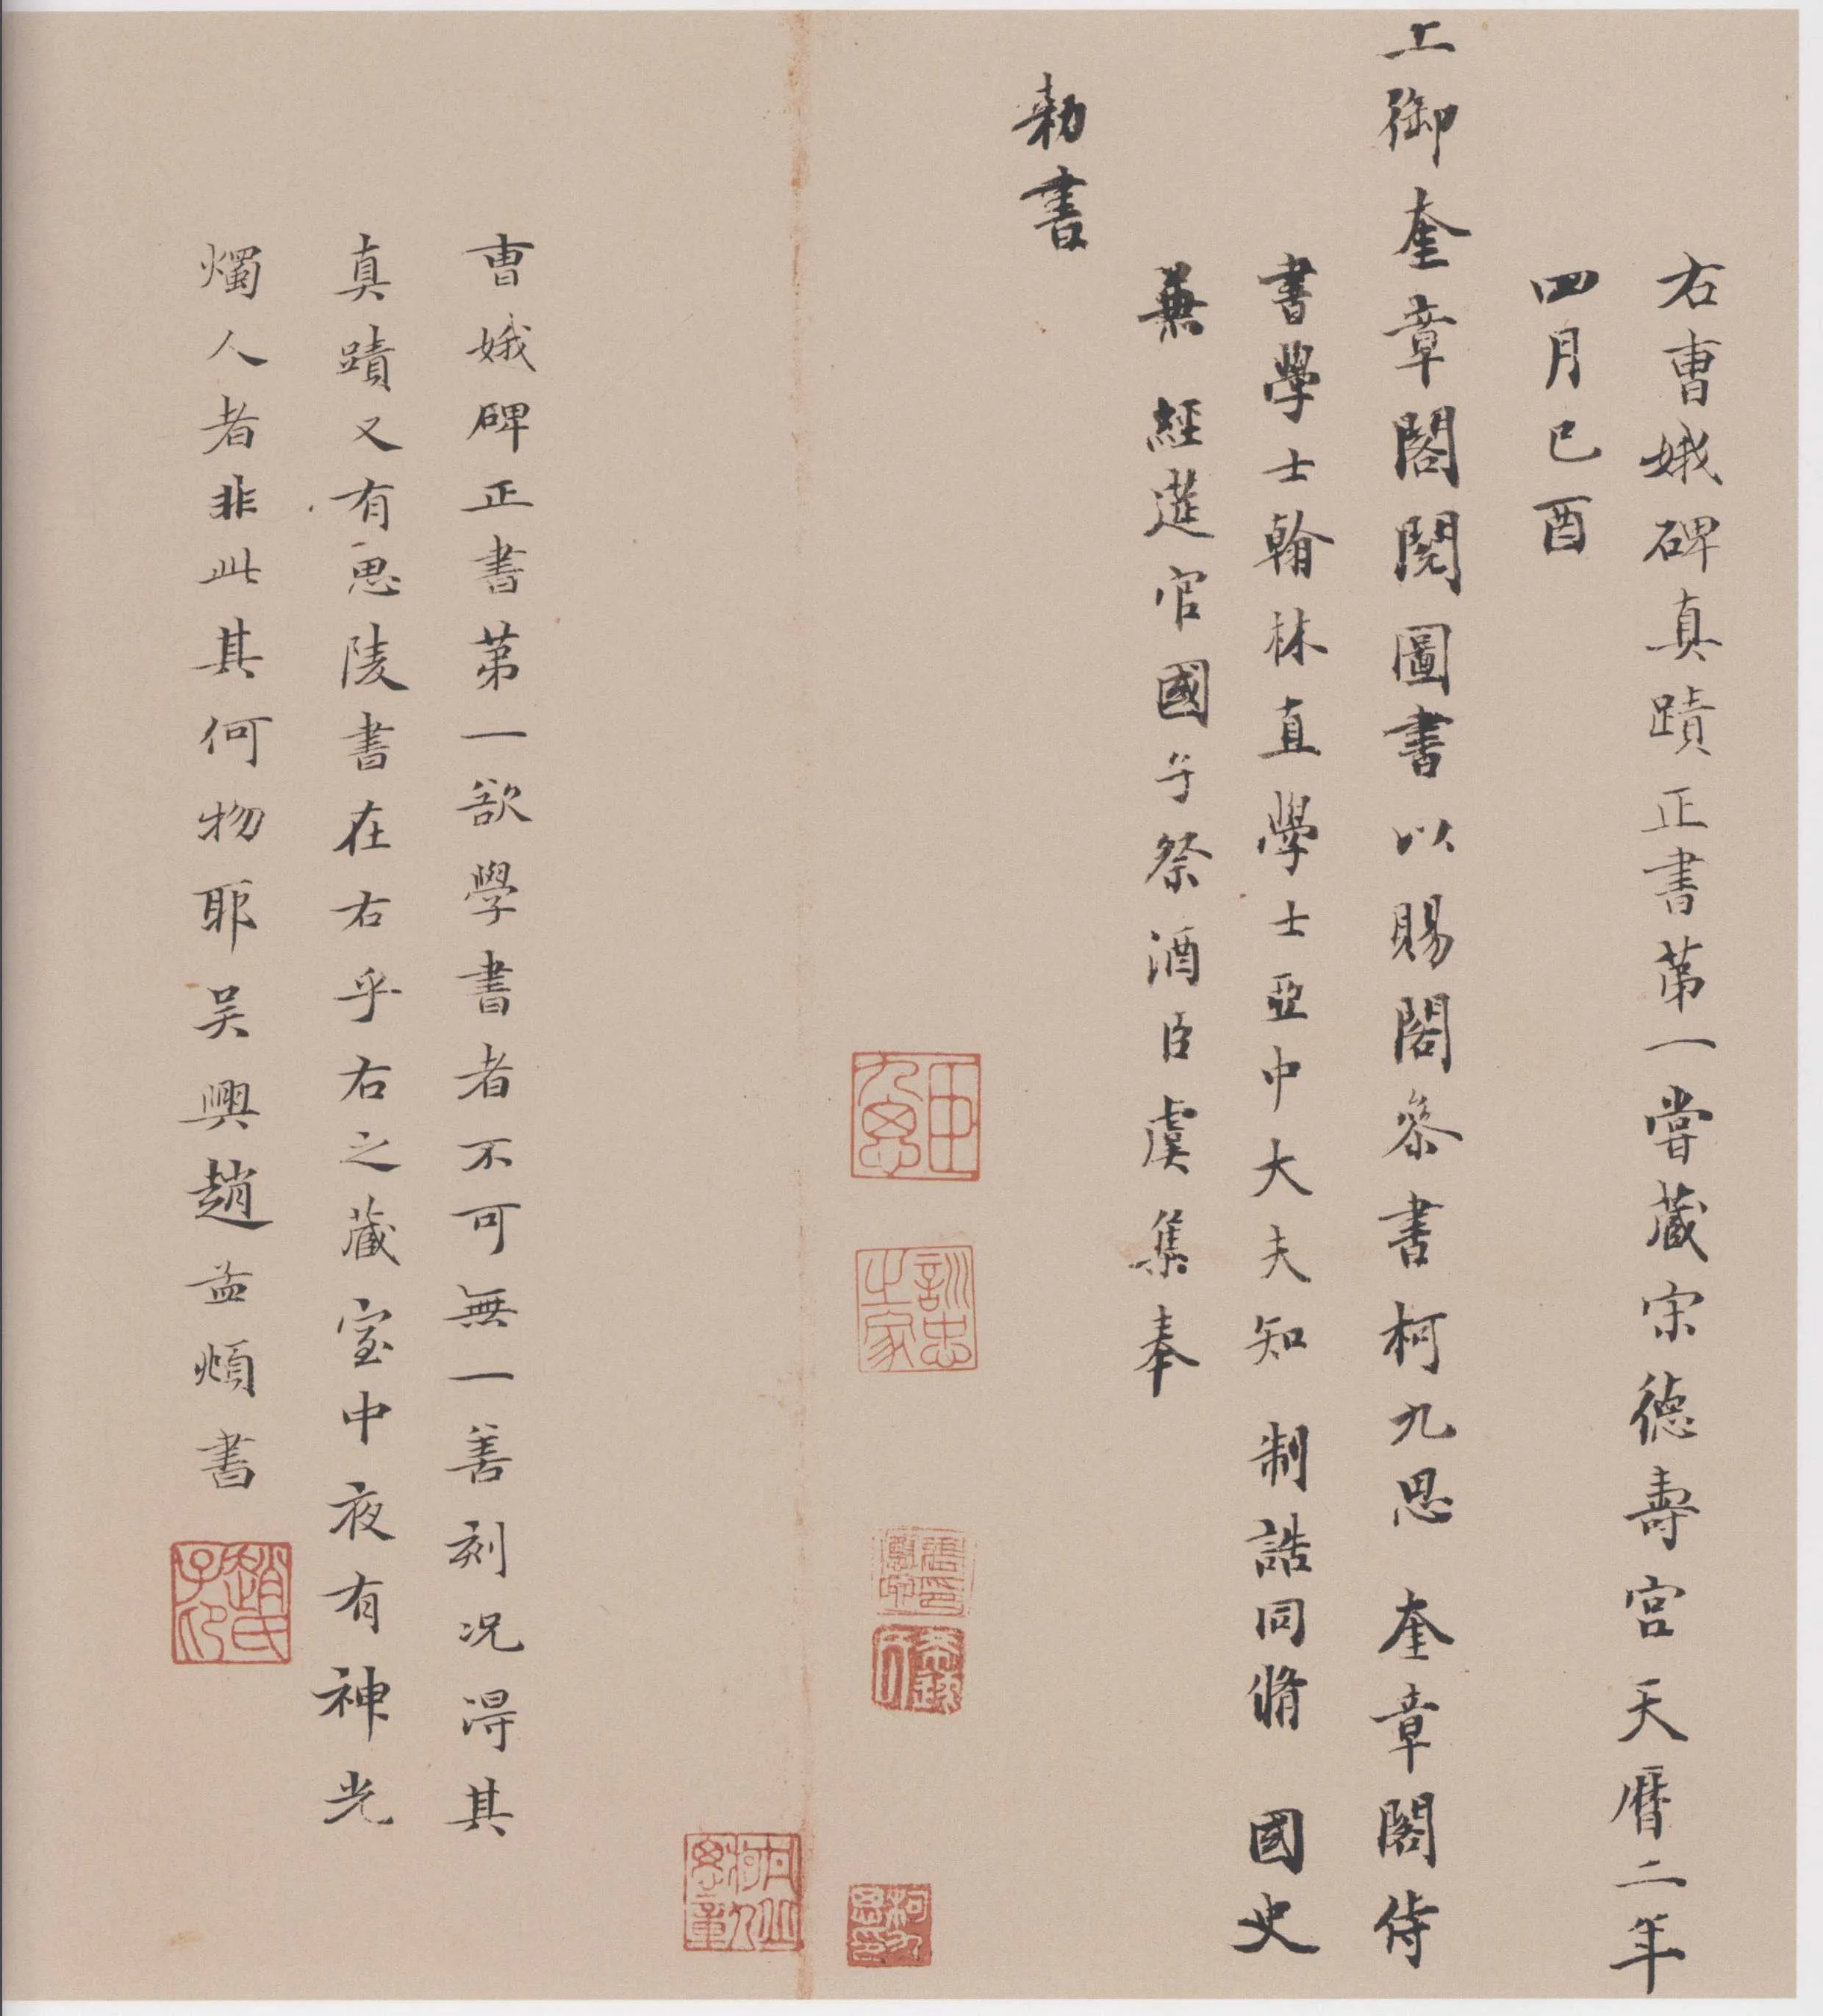 右曹娥碑真蹟正書第一嘗藏宋德壽宮天曆二年
四月己酉
上御奎章閣閱圖書以賜閣參書柯九思奎章閣侍
書學士翰林直學士亞中大夫知 制誥同脩 國史
兼 經筵官國子祭酒臣虞集奉
勑書
曹娥碑正書第一欲學書者不可無一善刻況得其
真蹟又有思陵書在右乎右之藏室中夜有神光
燭人者非此其何物耶吳興趙孟頫書
訓忠之家
柯九思印
趙氏子印